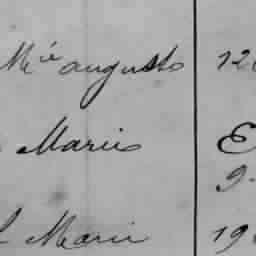 Mie augusto 12
Marii E
9
Marii 19